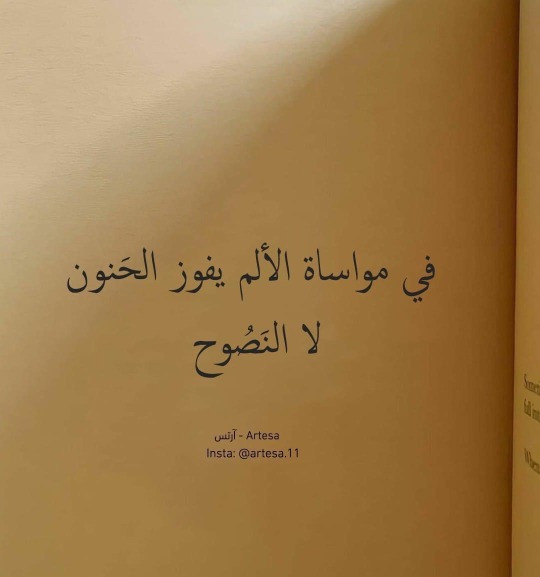 في مواساة الألم يفوز الحَنون
لا النَصُوح
آرتس - Artesa
Insta: @artesa.11